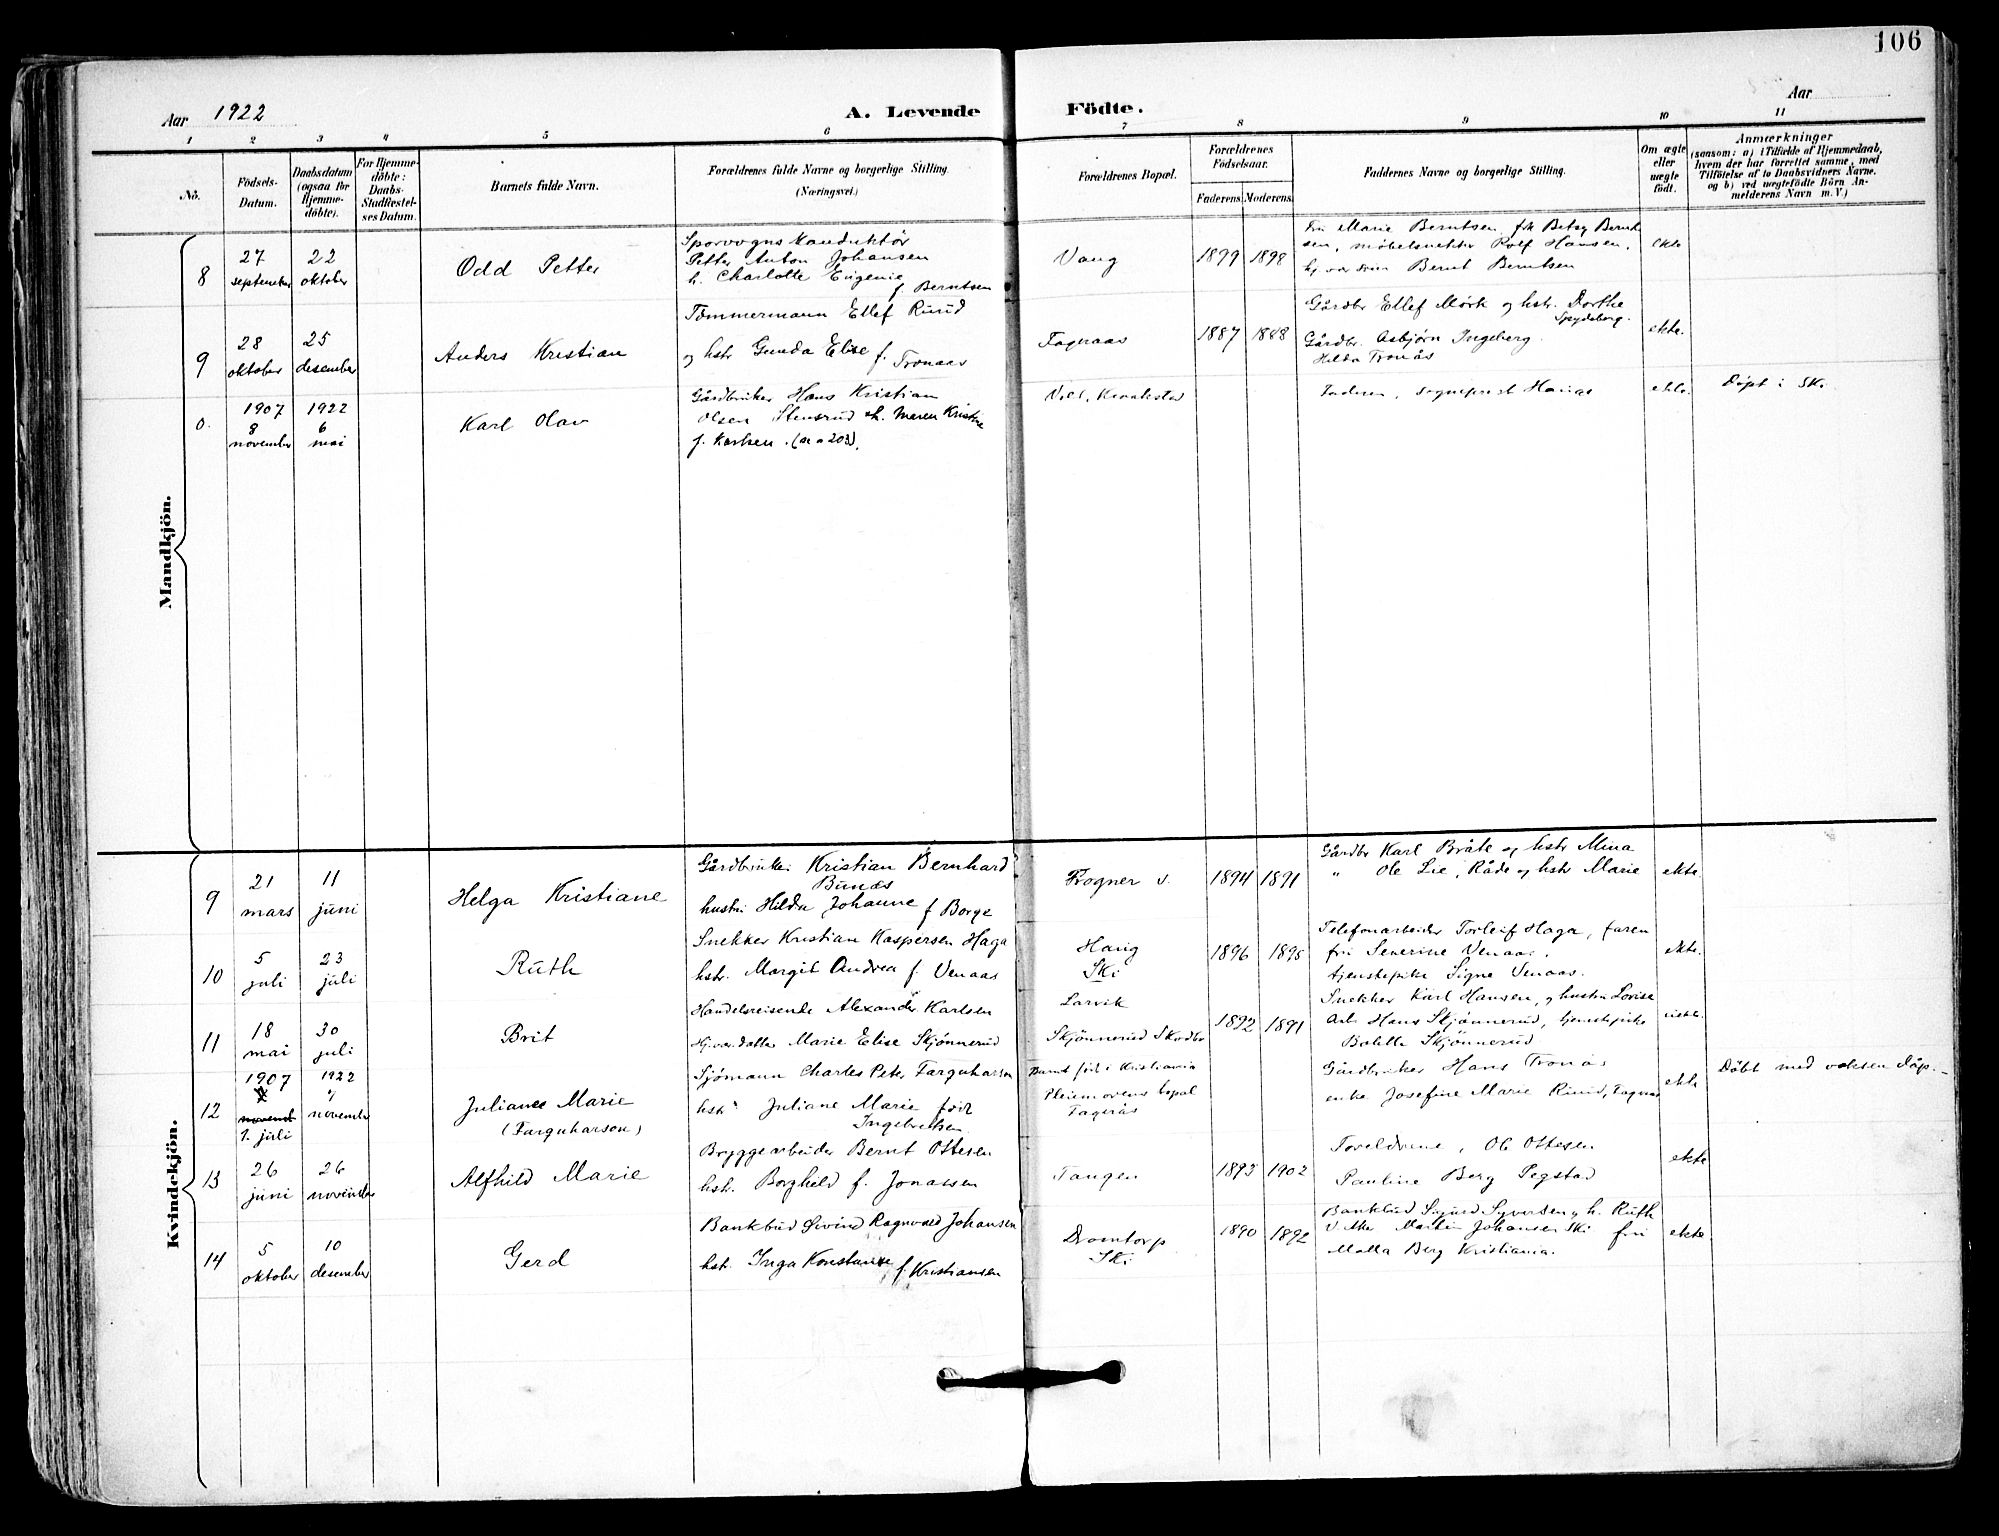 106
Aar 1922
A. Levende Födte.
Aar
1 2 3 4 5 6 7 8 9 10 11
No.
Födsels-
Datum.
Daabsdatum
(ogsaa for
Hjemme-
døbte).
For Hjemme-
døbte:
Daabs-
Stadfæstel-
ses Datum.
Barnets fulde Navn.
Forældrenes fulde Navne og borgerlige Stilling.
(Næringsvei.)
Forældrenes Bopæl.
Forældrenes
Födselsaar.
Faderens Moderens
Faddernes Navne og borgerlige Stilling.
Om ægte
eller
uægte
født.
Anmærkninger
(saasom: a) i Tilfælde af Hjemmedaab,
hvem der har forrettet samme, med
Tilföielse af to Daabsvidners Navne,
og b) ved uægtefödte Börn An-
melderens Navn m. V.)
Mandkjön.
8
27
september
22
oktober
Odd Petter
Sporvognskonduktør
Petter Anton Johansen
h. Charlotte Eugenie
f. Berntsen
Vang
1899 1898
Fru Marie Berntsen, frk Betsy Bernt
sen, møbelsnekker Rolf Hansen,
Bernt Berntsen
ekte
9
28
oktober
25
desember
Anders Kristian
Tømmermann Ellef Ruud
og hstr Gunda Elise f. Tronaas
Fagraas
1887 1888
Gårdbr Ellef Mørk og hstr. Dorthe
Spydeberg.
Gårdbr. Asbjørn Ingeberg.
Hilda Tronås
ekte.
0.
1907
8
november
1922
6
mai
Karl Olav
Gårdbruker Hans Kristian
Olsen Stensrud h. Maren Kristine
f. Karlsen.
Kraakstad
sogneprest Hauge
ekte.
Døpt i Ski
Kvindekjön.
9
21
mars
11
juni
Helga Kristiane
Gårdbruker Kristian Bernhard
Bunæs
hustru Hilda Johanne f Borge
Frogner v.
1894 1891
Gårdbr Karl Bråte og hstr Mina
" Ole Lie, Råde og hstr Marie
ekte
10
5
juli
23
juli
Ruth
Snekker Kristian Kaspersen Haga
hstr. Margit Andrea f. Venaas
Haug
Ski
1896 1895
Telefonarbeider Torleif Haga, faren
fru Severine Venaas.
tjenstepike Signe Venaas.
ekte.
11
18
mai
30
juli
Brit
Handelsreisende Alexander Karlsen
Hj.vær. datter Marie Elise Skjønnerud
Larvik
Skjønnerud Skodbo
1892 1891
Snekker Karl Hansen, og hustru Lovise
Arb. Hans Skjønnerud, tjenstepike
Bolette Skjønnerud
12
1907
novemb
7. juli
1922
november
Juliane Marie
(Farguharson)
Sjømann Charles Peter Farguharson
hstr. Juliane Marie født
Ingebretsen
Barnet født i Kristiania
Pleiemorens bopæl
Fagerås
Gårdbruker Hans Tronås
enke Josefine Marie Ruud, Fagraas
ekte
Døbt med voksen dåp.
13
26
juni
26
november
Alfhild Marie
Bryggearbeider Bernt Ottesen
hstr. Borghild f. Jonassen
Tangen
1893 1902
Foreldrene, Ole Ottesen
Pauline Berg Pegstad
ekte
14
5
oktober
10
desember
Gerd
Bankbud Øivind Ragnvald Johansen
hstr. Inga Konstanse f. Kristiansen
Dromtorp
Ski
1890 1892
Bankbud Sigurd Syversen og h. Ruth
Martin Johansen Ski fru
Malla Berg Kristiania.
ekte.